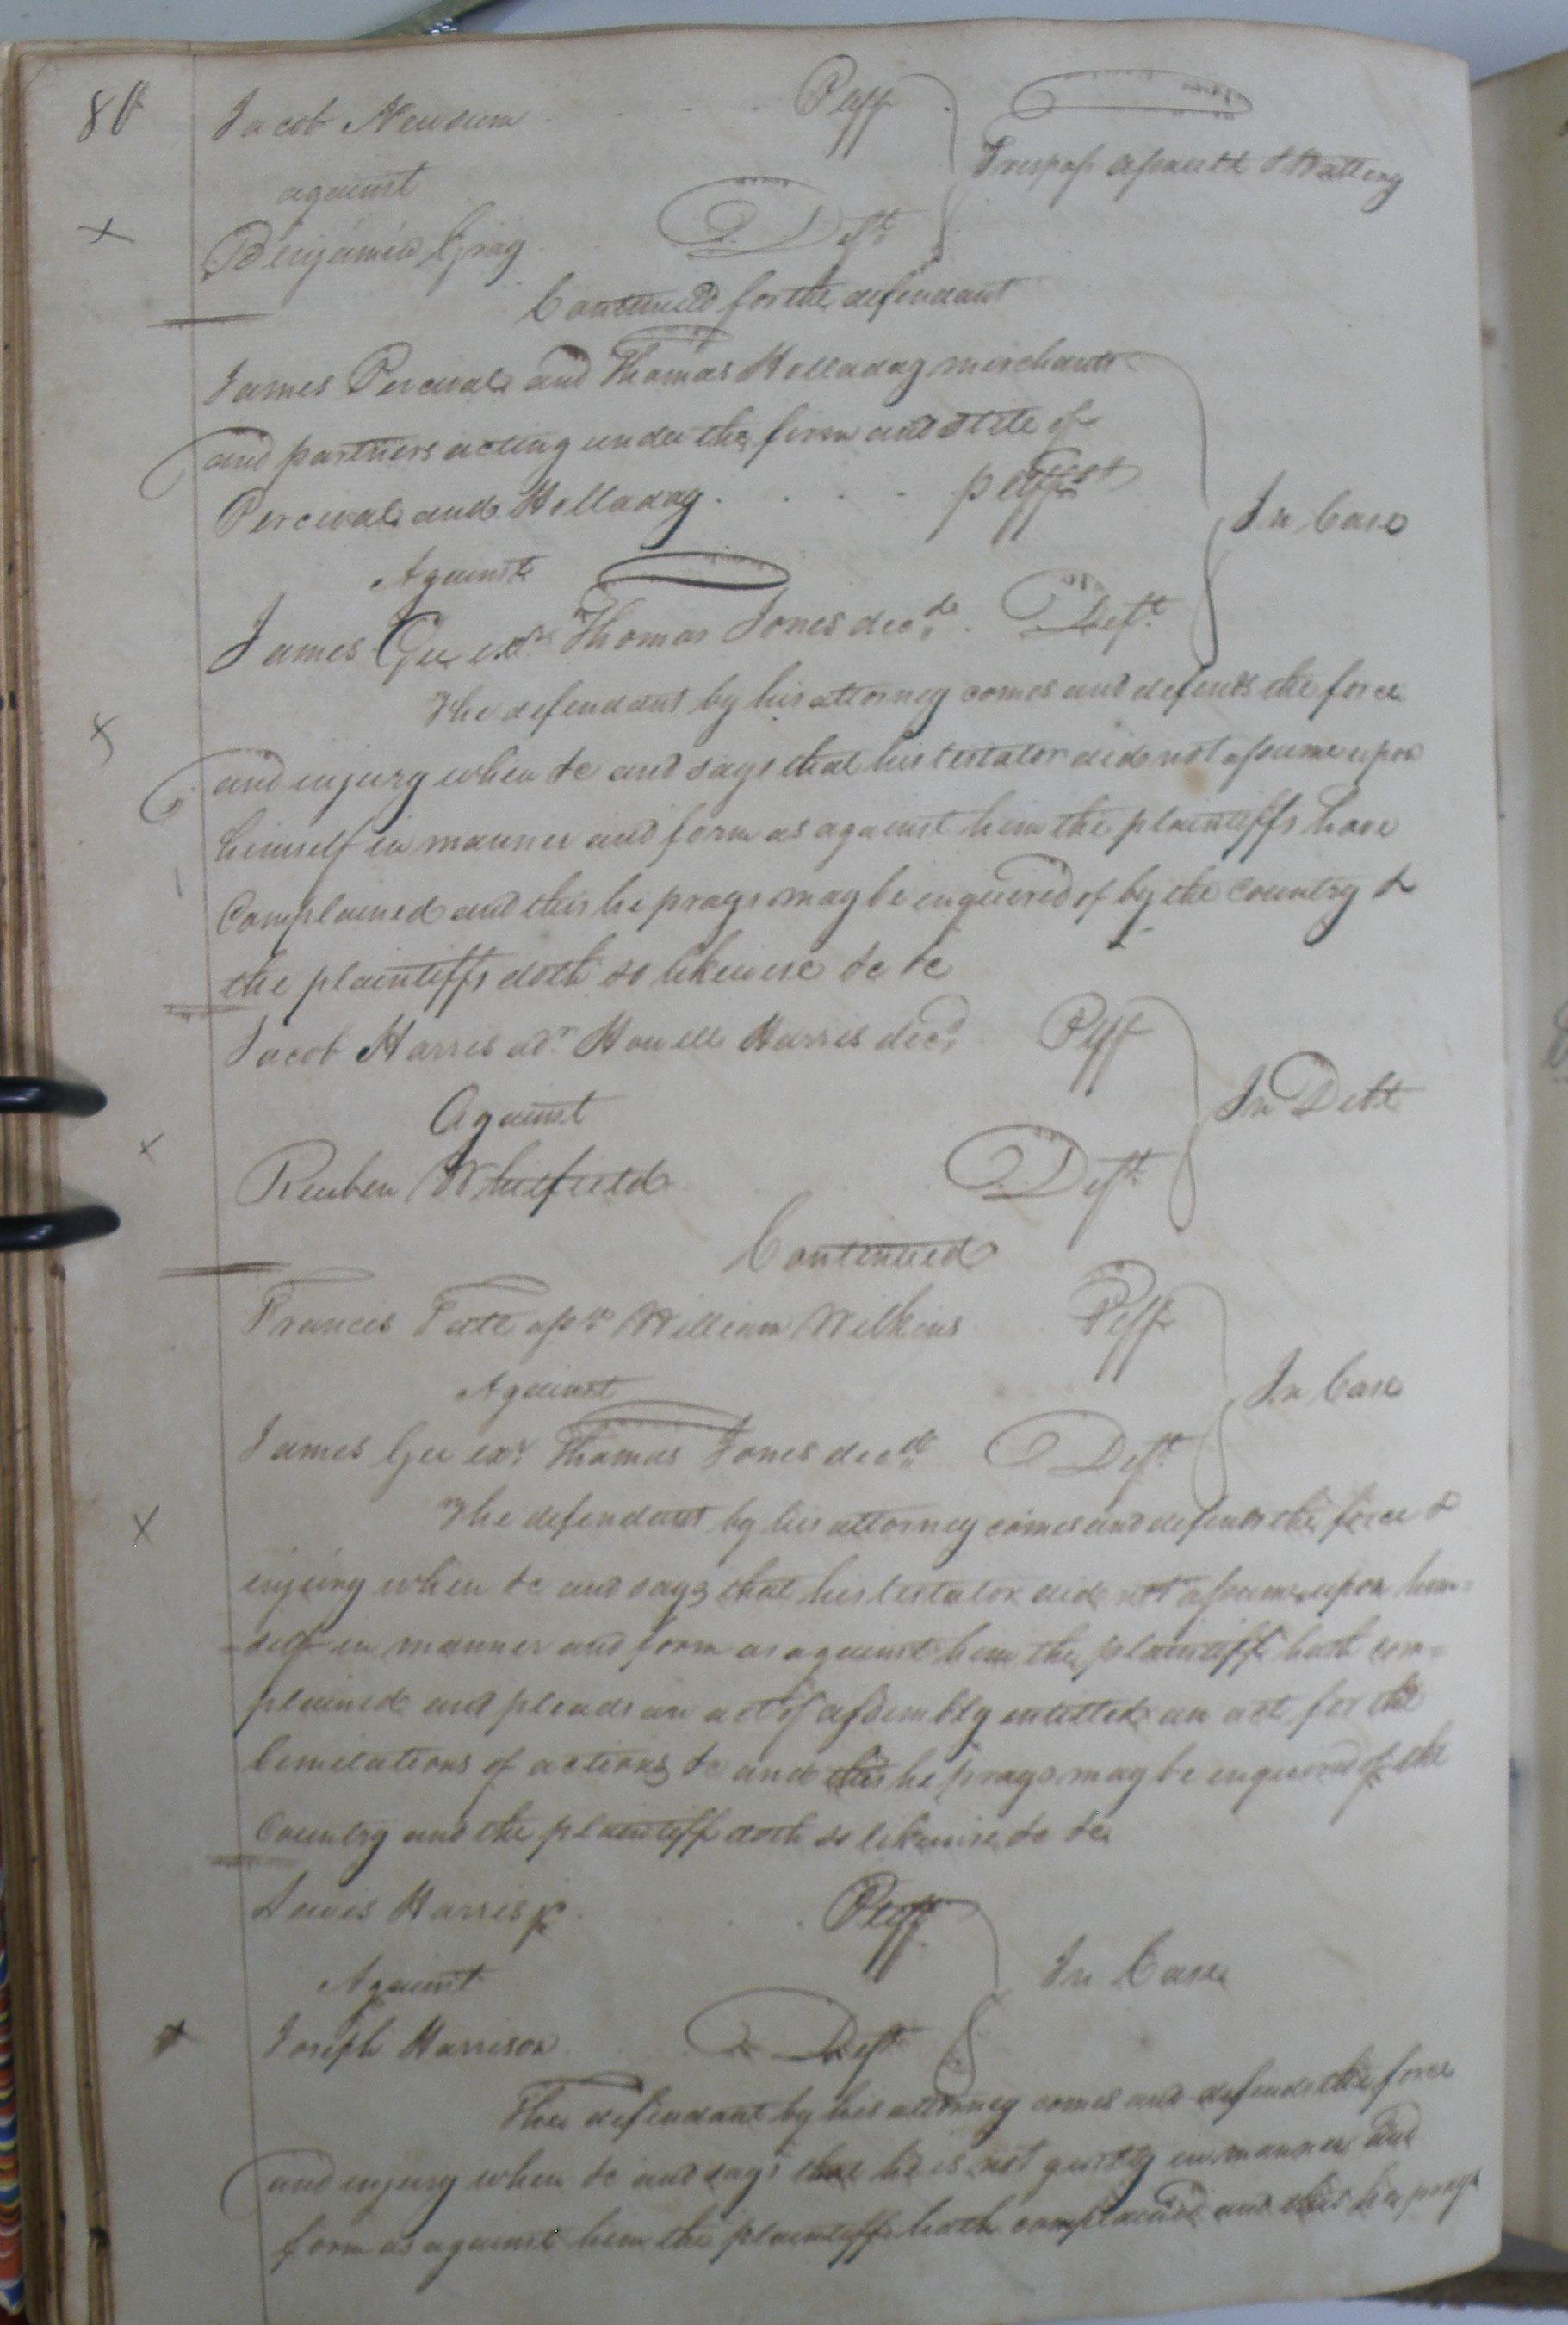 80
Jacob Newsum Plff
Trespass assault & Battery
against
Benjamin Gray Deft.
Continued for the defendant
James Percivale and Thomas Holladay merchants
and partners acting under the firm and stile of
Percivale and Holladay plffs
In Case
Against
James Gee exr. Thomas Jones decd. Deft.
The defendant by his attorney comes and defends the force
and injury when &c and says that his testator did not assume upon
himself in manner and form as against him the plaintiffs have
Complained and this he prays may be enquired of by the Country &
the plaintiffs doth so likewise &c &c
Jacob Harris adr. Howell Harris decd. Plff
In Debt
Against
Reuben Whitfield Deft.
Continued
Francis Tate asse William Wilkins Plff
In Case
Against
James Gee exr Thomas Jones decd. Deft.
The defendant by his attorney comes and defends the force &
injury when &c and says that his testator did not assume upon him=
=self in manner and form as against him the plaintiff hath com=
plained and pleads an act of assembly intitled an act for the
limitations of actions &c and this he prays may be enquired of the
Country and the plaintiff doth so likewise &c &c
Lewis Harris jr Plaff
In Case
Against
Joseph Harrison Deft
The defendant by his attorney comes and defends the force
and injury when &c and says that he is not guilty in manner and
form as against him the plaintiff hath complained and this he prays